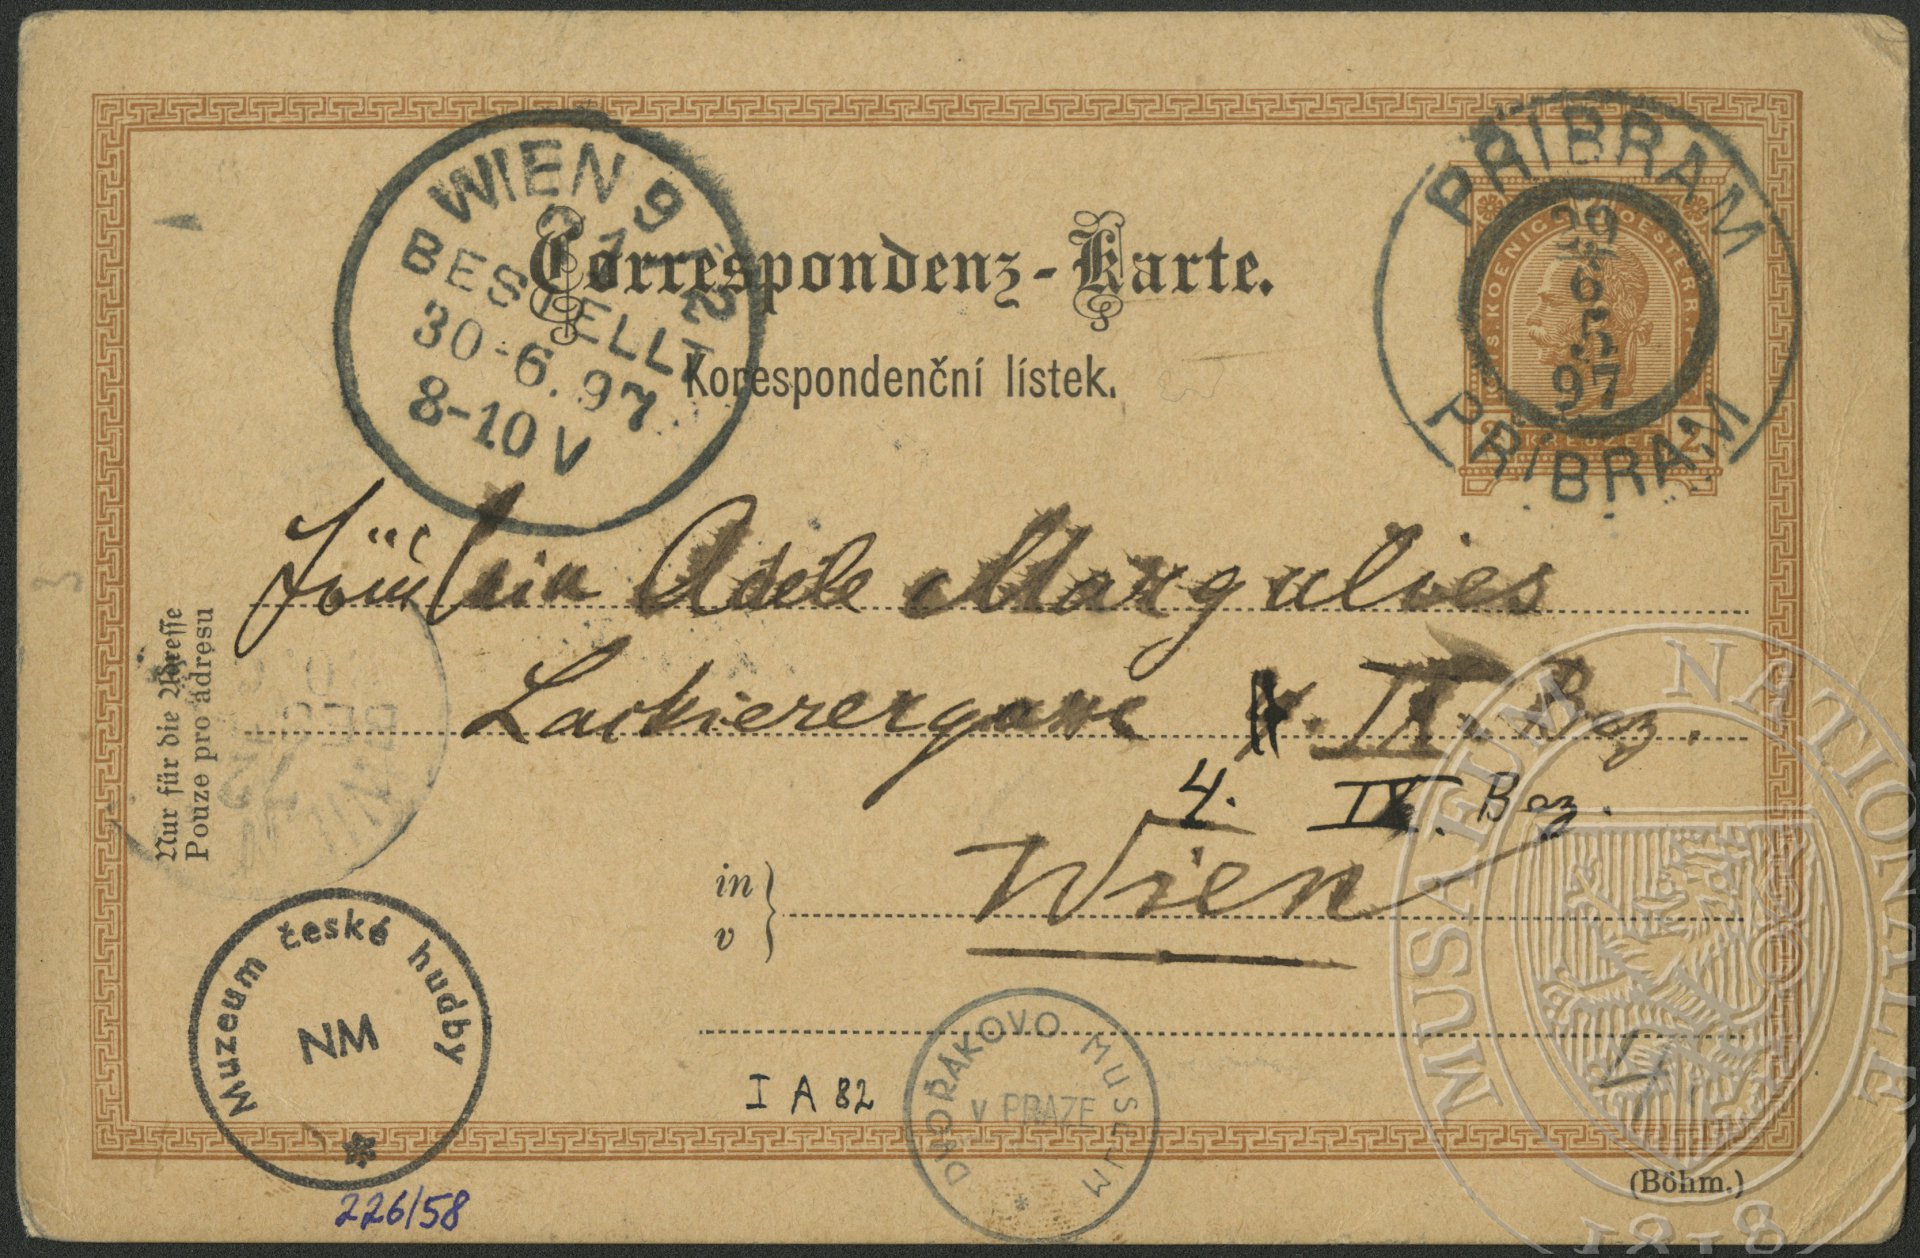 PŘIBRAM
29
6
5
97
PŘIBRAM
WIEN 9
BESTELLT
30.6.97
8-10V
Correspondenz-Karte.
Korespondenční lístek.
2 KREUZER 2
Fräulein Adele Margulies
Lackierergasse IX. Bez.
4. IX. Bez.
in
v
Wien
Nur für die Adresse
Pouze pro adresu
Muzeum české hudby
NM
I A 82
DVOŘAKOVO MUSEUM
V PRAZE
226/58
(Böhm.)
MUSAEUM NATIONALE
1818